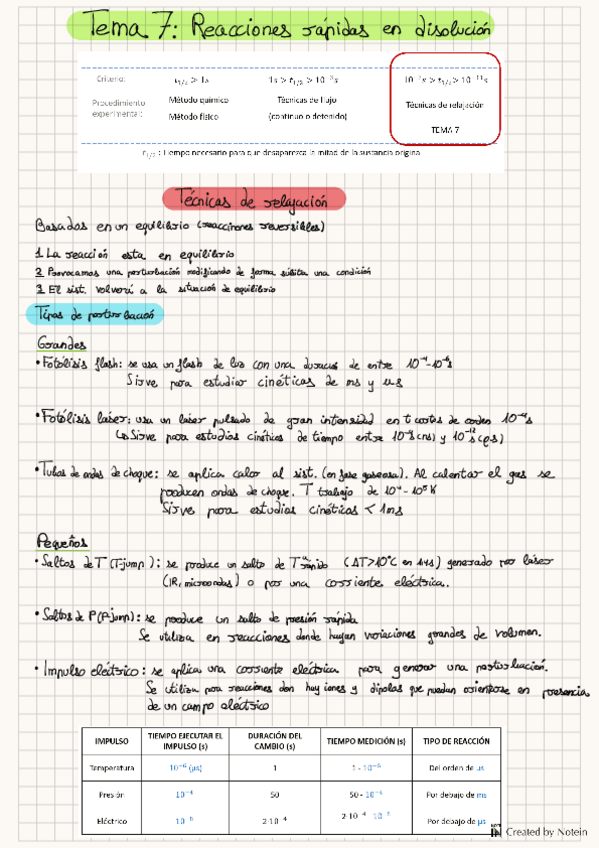 Tema 7: Reacciones rápidas en disolución
Criterio: t1/2 > 1s 1s > t1/2 > 10⁻³s 10⁻³s > t1/2 > 10⁻¹¹s
Procedimiento experimental: Método químico Técnicas de flujo Técnicas de relajación
Método físico (continuo o detenido)
TEMA 7
t1/2 : Tiempo necesario para que desaparezca la mitad de la sustancia origina
Técnicas de relajación
Basados en un equilibrio (reacciones reversibles)
1 La reacción esta en equilibrio
2 Provocamos una perturbación modificando de forma súbita una condición
3 El sist. volverá a la situación de equilibrio
Tipos de perturbación
Grandes
• Fotólisis flash: se usa un flash de luz con una duración de entre
Sirve para estudiar cinéticas de ms y µs
• Fotólisis láser: usa un láser pulsado de gran intensidad en t cortos de orden
↳ Sirve para estudios cinéticos de tiempo entre (ns) y (ps)
• Tubos de ondas de choque: se aplica calor al sist. (en fase gaseosa). Al calentar el gas se
producen ondas de choque. T trabajo de
Sirve para estudios cinéticos < 1ms
Pequeños
• Saltos de T (T-jump): se produce un salto de T rápido (ΔT>10°C en 1µs) generado por láser
(IR, microondas) o por una corriente eléctrica.
• Saltos de P (P-jump): se produce un salto de presión rápida
Se utiliza en reacciones donde hayan variaciones grandes de volumen.
• Impulso eléctrico: se aplica una corriente eléctrica para generar una perturbación.
Se utiliza para reacciones don hay iones y dipolos que puedan orientarse en presencia
de un campo eléctrico
IMPULSO TIEMPO EJECUTAR EL IMPULSO (s) DURACIÓN DEL CAMBIO (s) TIEMPO MEDICIÓN (s) TIPO DE REACCIÓN
Temperatura 10⁻⁶ (µs) 1 1 - 10⁻⁶ Del orden de µs
Presión 10⁻⁴ 50 50 - 10⁻⁴ Por debajo de ms
Eléctrico 2·10⁻⁴ Por debajo de µs
Created by Notein